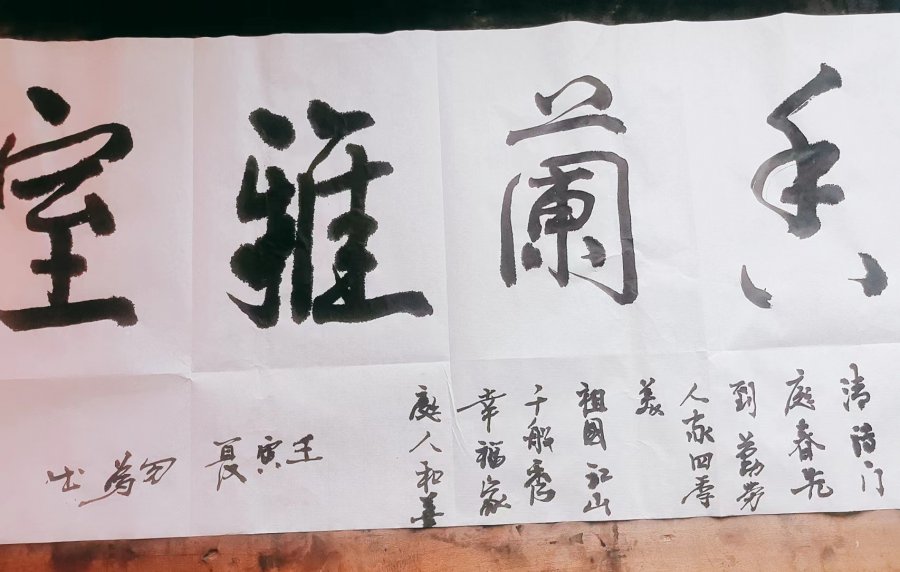 香蘭雅室
清洁门
庭春先
到勤劳
人家四季
美
祖国江山
千般秀
幸福家
庭人和善
壬寅夏